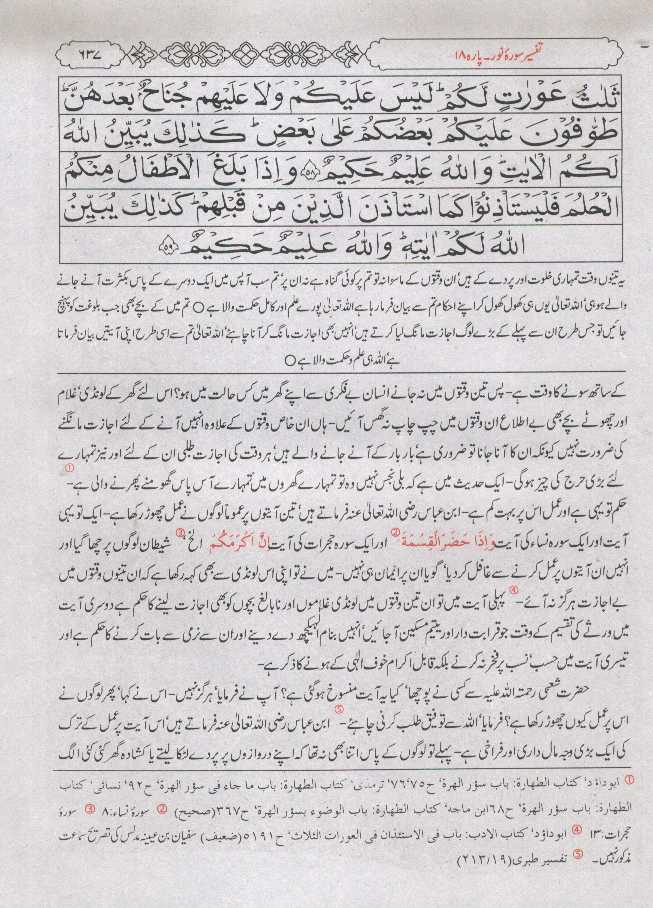 تفسیر سورۂ نور۔ پارہ ۱۸
۶۳۷
ثَلٰثُ عَوْرٰتٍ لَّكُمْ ؕ لَيْسَ عَلَيْكُمْ وَلَا عَلَيْهِمْ جُنَاحٌۢ بَعْدَهُنَّ ؕ
طَوّٰفُوْنَ عَلَيْكُمْ بَعْضُكُمْ عَلٰى بَعْضٍ ؕ كَذٰلِكَ يُبَيِّنُ اللّٰهُ
لَكُمُ الْاٰيٰتِ ؕ وَاللّٰهُ عَلِيْمٌ حَكِيْمٌ ﴿۵۸﴾ وَاِذَا بَلَغَ الْاَطْفَالُ مِنْكُمُ
الْحُلُمَ فَلْيَسْتَاْذِنُوْا كَمَا اسْتَاْذَنَ الَّذِيْنَ مِنْ قَبْلِهِمْ ؕ كَذٰلِكَ يُبَيِّنُ
اللّٰهُ لَكُمْ اٰيٰتِهٖ ؕ وَاللّٰهُ عَلِيْمٌ حَكِيْمٌ ﴿۵۹﴾
یہ تینوں وقت تمہاری خلوت اور پردے کے ہیں' ان وقتوں کے ماسوا نہ تو تم پر کوئی گناہ ہے نہ ان پر' تم سب آپس میں ایک دوسرے کے پاس بکثرت آنے جانے
والے ہو ہی' اللہ تعالیٰ یوں ہی کھول کھول کر اپنے احکام تم سے بیان فرما رہا ہے' اللہ تعالیٰ پورے علم اور کامل حکمت والا ہے ○ تم میں کے بچے بھی جب بلوغت کو پہنچ
جائیں تو جس طرح ان سے پہلے کے بڑے لوگ اجازت مانگ لیا کرتے ہیں' انہیں بھی اجازت مانگ کر آنا چاہئے' اللہ تعالیٰ تم سے اسی طرح اپنی آیتیں بیان فرماتا
ہے' اللہ ہی علم و حکمت والا ہے ○
کے ساتھ سونے کا وقت ہے- پس تین وقتوں میں نہ جانے انسان بے فکری سے اپنے گھر میں کس حالت میں ہو؟ اس لئے گھر کے لونڈی' غلام
اور چھوٹے بچے بھی بے اطلاع ان وقتوں میں چپ چاپ نہ گھس آئیں- ہاں ان خاص وقتوں کے علاوہ انہیں آنے کے لئے اجازت مانگنے
کی ضرورت نہیں کیونکہ ان کا آنا جانا تو ضروری ہے' بار بار کے آنے جانے والے ہیں' ہر وقت کی اجازت طلبی ان کے لئے اور نیز تمہارے
لئے بڑی حرج کی چیز ہوگی- ایک حدیث میں ہے کہ بلی نجس نہیں وہ تو تمہارے گھروں میں' تمہارے آس پاس گھومنے پھرنے والی ہے-①
حکم تو یہی ہے اور عمل اس پر بہت کم ہے- ابن عباس رضی اللہ تعالیٰ عنہ فرماتے ہیں' تین آیتوں پر عموماً لوگوں نے عمل چھوڑ رکھا ہے- ایک تو یہی
آیت اور ایک سورہ نساء کی آیت وَاِذَا حَضَرَ الْقِسْمَةَ② اور ایک سورہ حجرات کی آیت اِنَّ اَكْرَمَكُمْ الخ③ شیطان لوگوں پر چھا گیا اور
انہیں ان آیتوں پر عمل کرنے سے غافل کر دیا' گویا ان پر ایمان ہی نہیں- میں نے تو اپنی اس لونڈی سے بھی کہہ رکھا ہے کہ ان تینوں وقتوں میں
بے اجازت ہرگز نہ آئے-④ پہلی آیت میں تو ان تین وقتوں میں لونڈی غلاموں اور نابالغ بچوں کو بھی اجازت لینے کا حکم ہے دوسری آیت
میں ورثے کی تقسیم کے وقت جو قرابت دار اور یتیم مسکین آ جائیں' انہیں بنام الٰہی کچھ دے دینے اور ان سے نرمی سے بات کرنے کا حکم ہے اور
تیسری آیت میں حسب' نسب پر فخر نہ کرنے بلکہ قابل اکرام خوف الٰہی کے ہونے کا ذکر ہے-
حضرت شعبی رحمتہ اللہ علیہ سے کسی نے پوچھا' کیا یہ آیت منسوخ ہو گئی ہے؟ آپ نے فرمایا' ہرگز نہیں- اس نے کہا' پھر لوگوں نے
اس پر عمل کیوں چھوڑ رکھا ہے؟ فرمایا' اللہ سے توفیق طلب کرنی چاہئے-⑤ ابن عباس رضی اللہ تعالیٰ عنہ فرماتے ہیں' اس آیت پر عمل کے ترک
کی ایک بڑی وجہ مال داری اور فراخی ہے- پہلے تو لوگوں کے پاس اتنا بھی نہ تھا کہ اپنے دروازوں پر پردے لٹکا لیتے یا کشادہ گھر کئی کئی الگ
① ابوداؤد' کتاب الطہارۃ: باب سؤر الھرۃ' ح۷۵'۷۶' ترمذی' کتاب الطہارۃ: باب ما جاء فی سؤر الھرۃ' ح۹۲' نسائی' کتاب
الطہارۃ: باب سؤر الھرۃ' ح۶۸' ابن ماجہ' کتاب الطہارۃ: باب الوضوء بسؤر الھرۃ' ح۳۶۷(صحیح) ② سورۂ نساء:۸ ③ سورۂ
حجرات:۱۳ ④ ابوداؤد' کتاب الادب: باب فی الاستئذان فی العورات الثلاث' ح۵۱۹۱(ضعیف) سفیان بن عیینہ مدلس کی تصریح سماعت
مذکور نہیں۔ ⑤ تفسیر طبری (۲۱۳/۱۹)